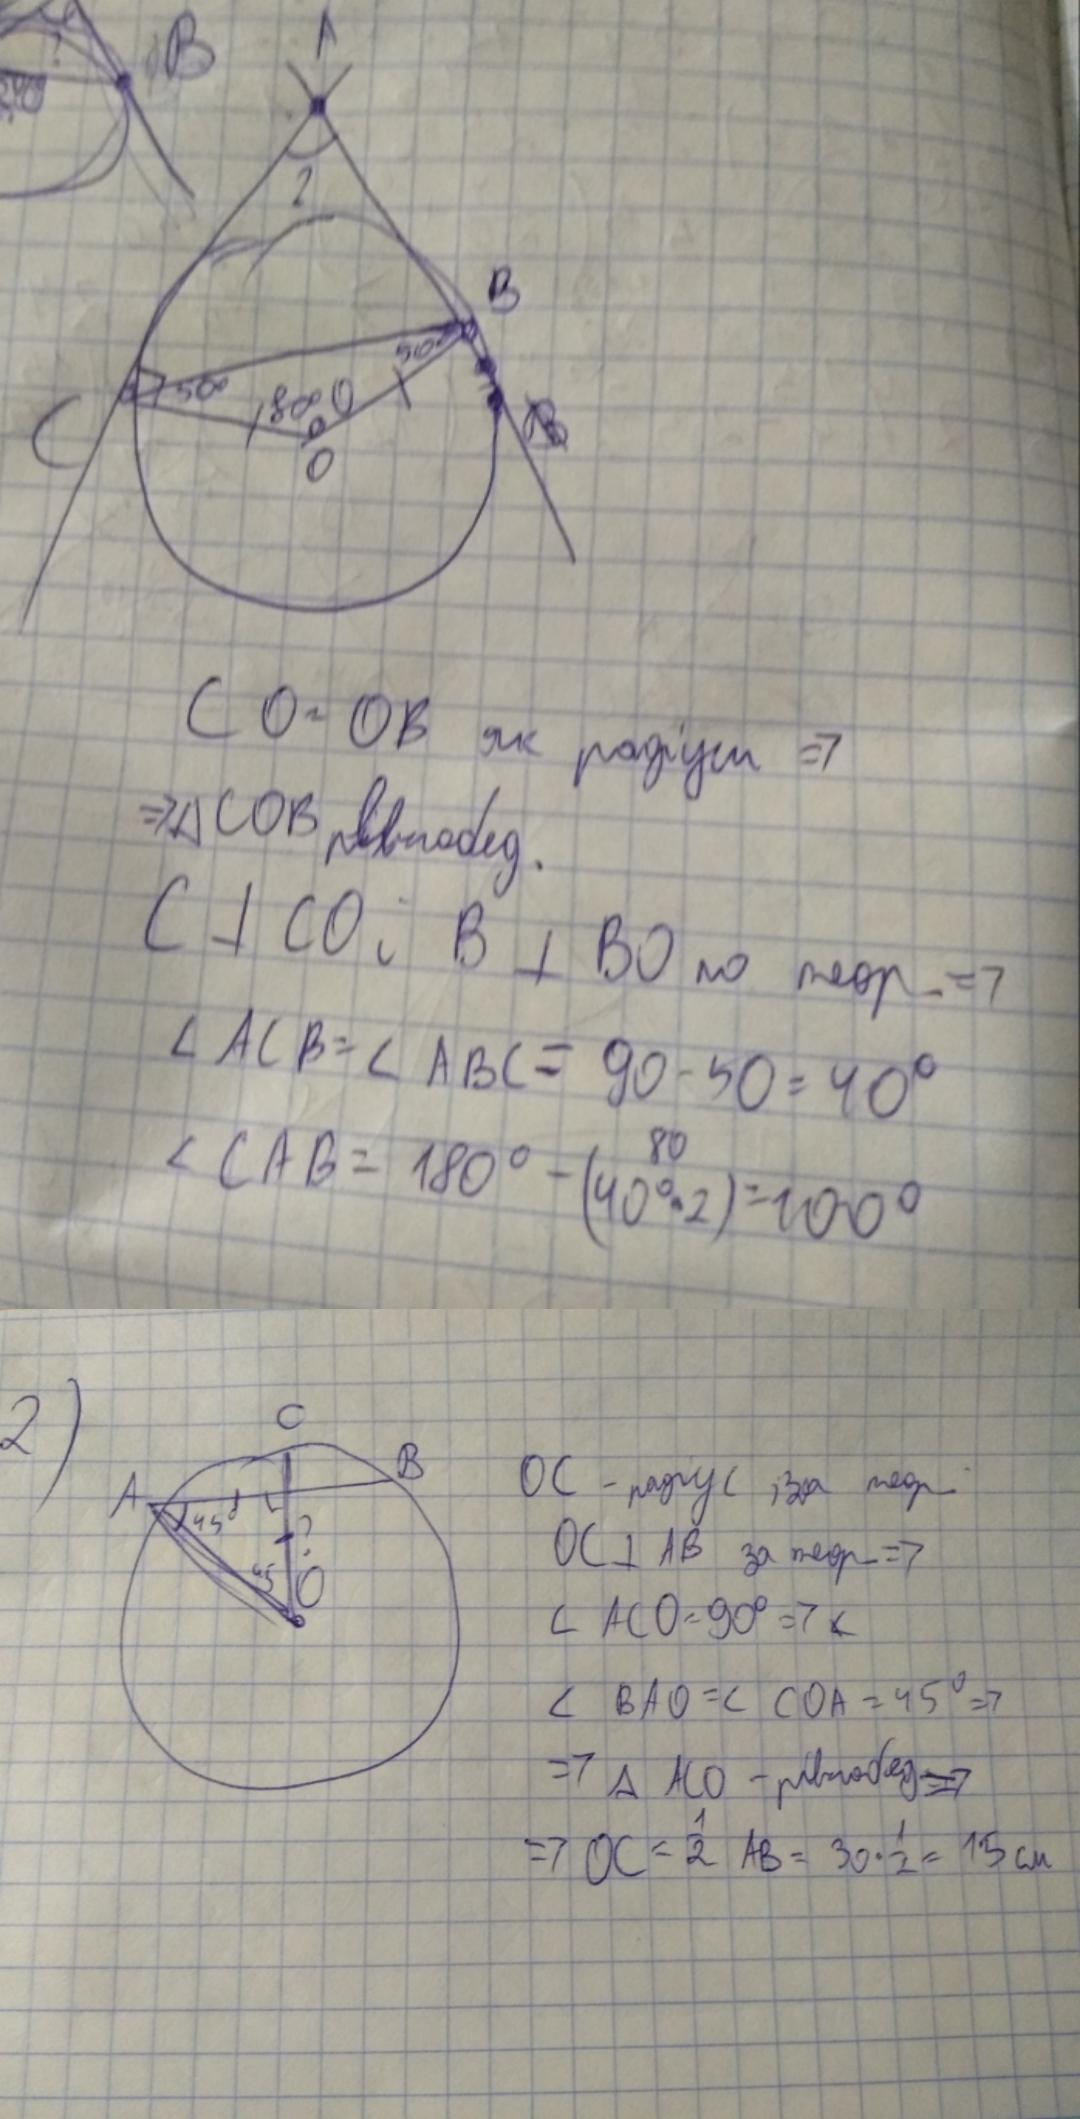 B
A
?
B
50°
50°
80°
C
O
CO = OB як радіуси =>
=> Δ COB рівнобед.
C ⊥ CO і B ⊥ BO по теор. =>
< ACB = < ABC = 90 - 50 = 40°
80
< CAB = 180° - (40°·2) = 100°
2)
C
A
B
45°
?
45
O
OC - радіус, за теор.
OC ⊥ AB за теор. =>
< ACO = 90° => <
< BAO = < COA = 45° =>
=> Δ ACO - рівнобед =>
=> OC = 1/2 AB = 30 · 1/2 = 15 см